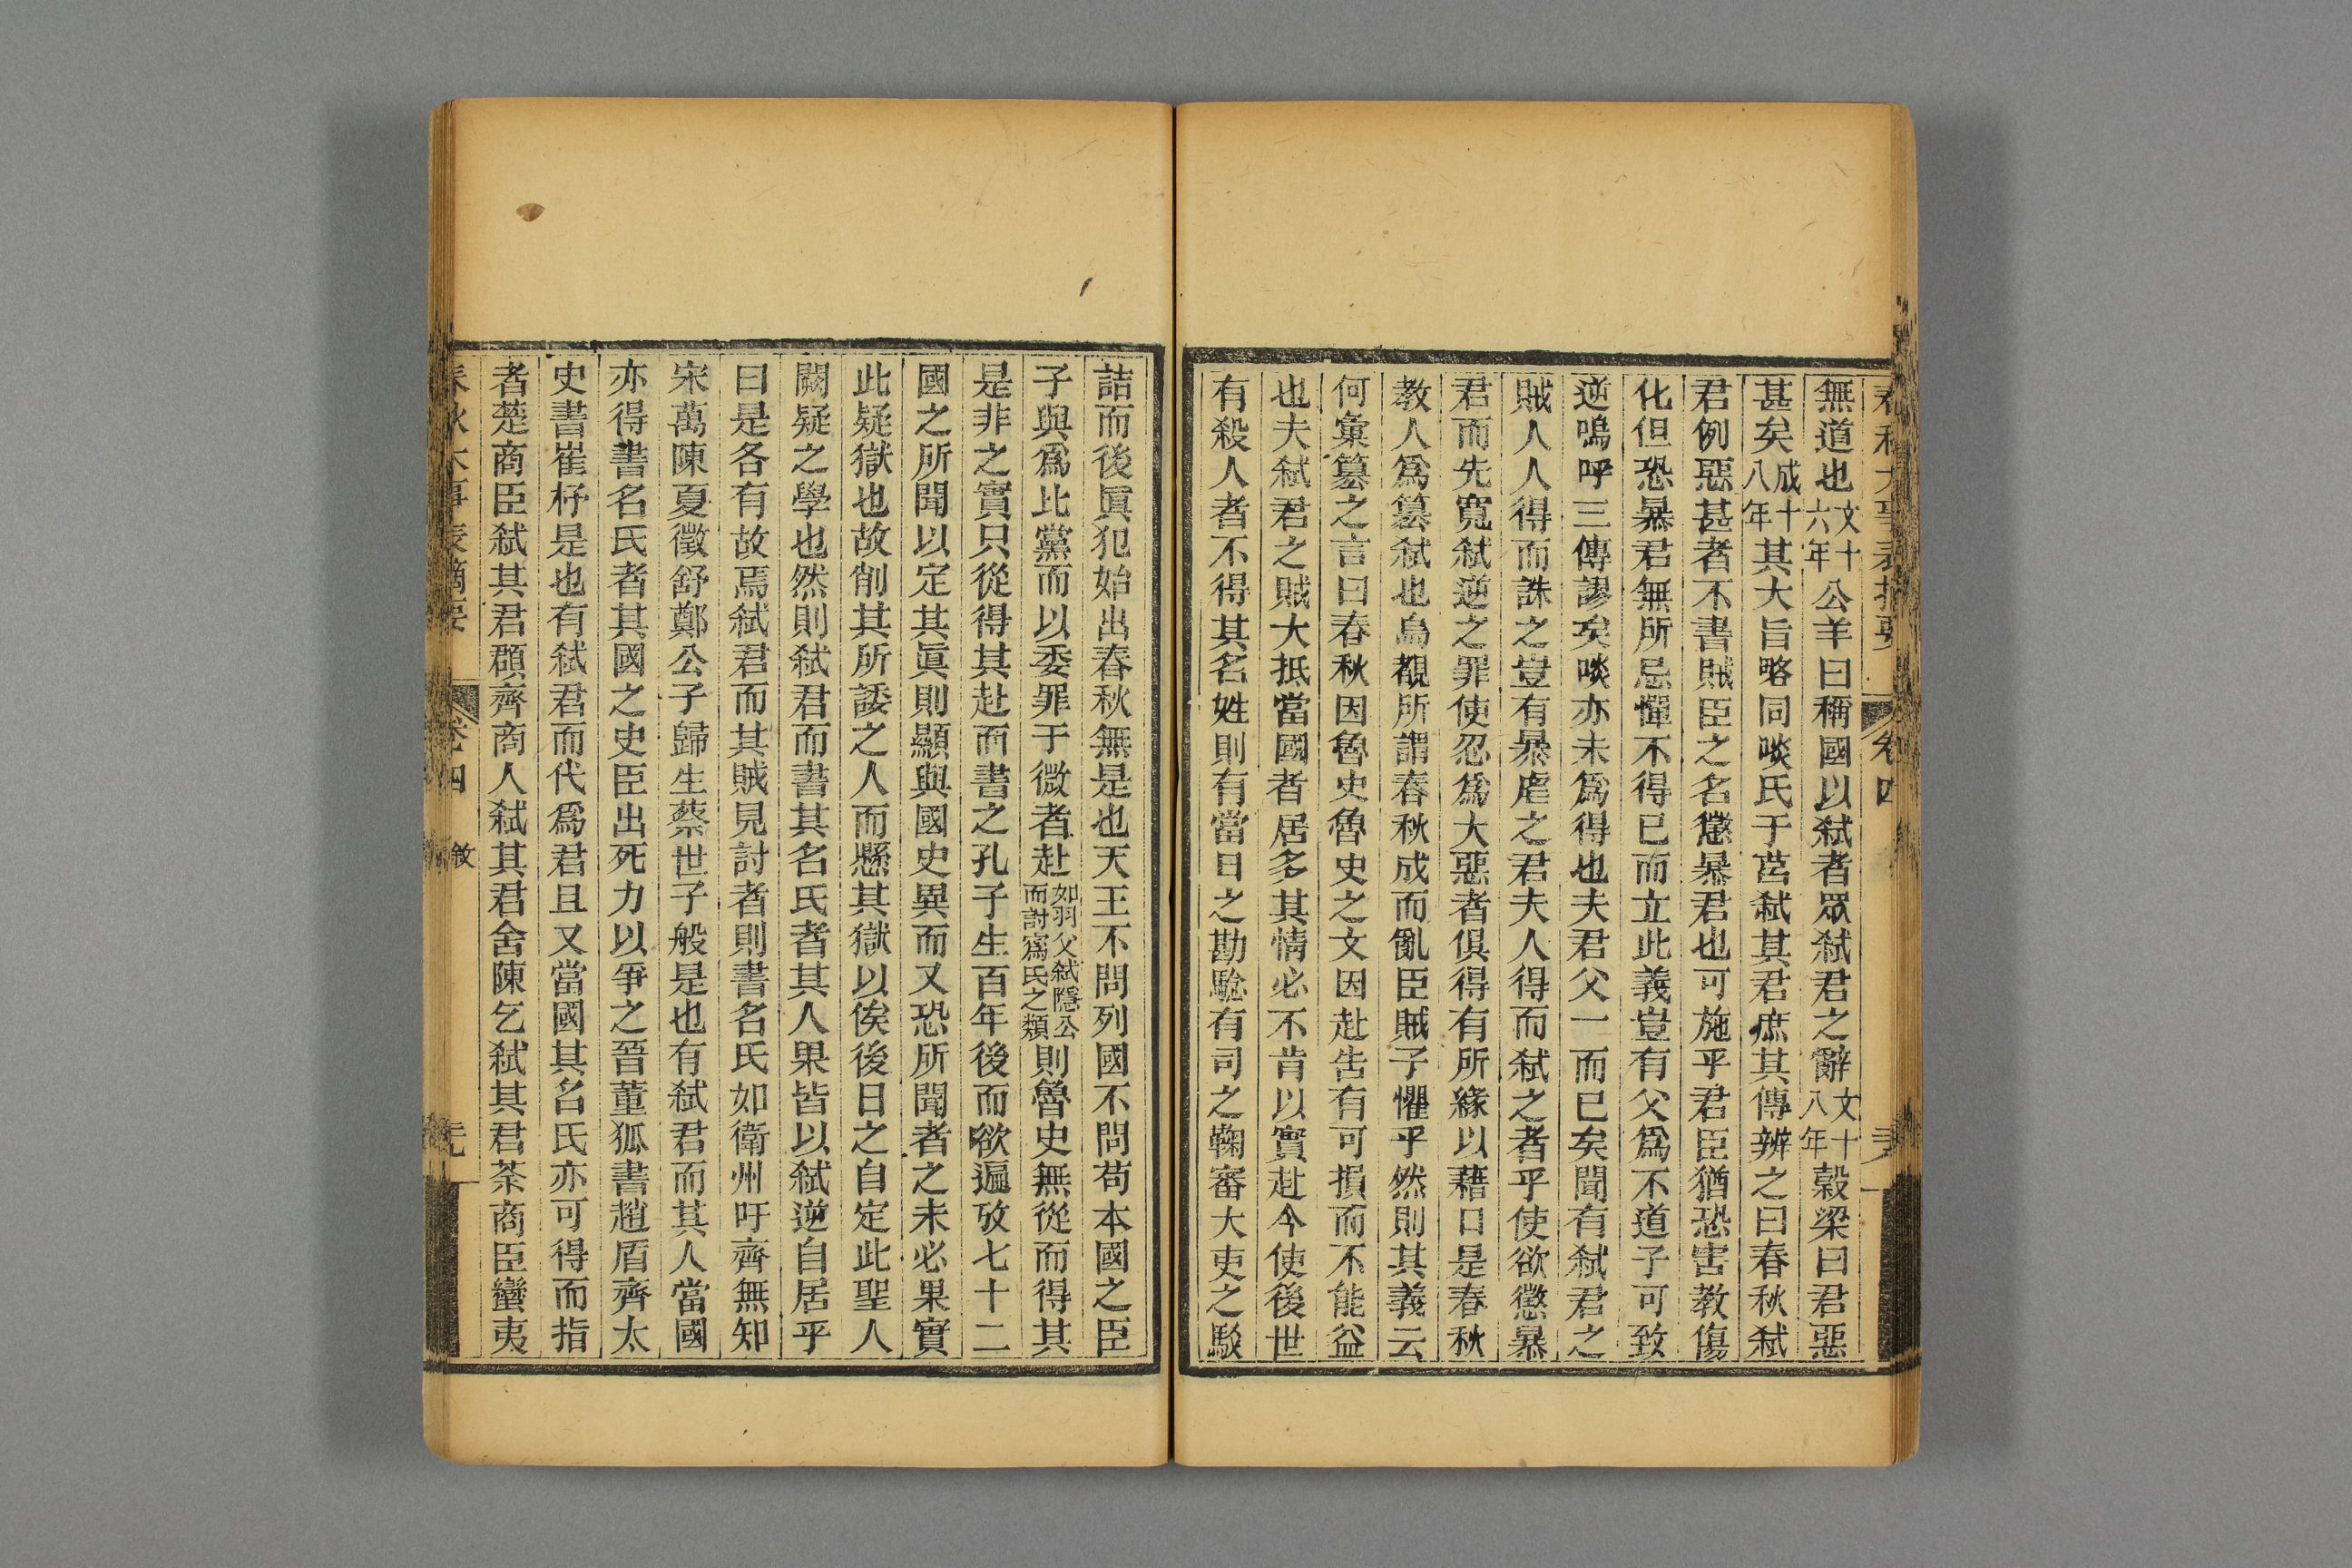 春秋大事表摘要 卷四
無道也文十六年公羊曰稱國以弑者眾弑君之辭文十八年穀梁曰君惡
甚矣成十八年其大旨略同啖氏于莒弑其君庶其傳辨之曰春秋弑
君例惡甚者不書賊臣之名懲暴君也可施乎君臣猶恐害教傷
化但恐暴君無所忌憚不得已而立此義豈有父爲不道子可致
逆嗚呼三傳謬矣啖亦未爲得也夫君父一而已矣聞有弑君之
賊人人得而誅之豈有暴虐之君夫人得而弑之者乎使欲懲暴
君而先寬弑逆之罪使忍爲大惡者俱得有所緣以藉口是春秋
教人爲簒弑也烏覩所謂春秋成而亂臣賊子懼乎然則其義云
何彙簒之言曰春秋因魯史魯史之文因赴告有可損而不能益
也夫弑君之賊大抵當國者居多其情必不肯以實赴今使後世
有殺人者不得其名姓則有當日之勘驗有司之鞠審大吏之駁
詰而後眞犯始出春秋無是也天王不問列國不問苟本國之臣
子與爲比黨而以委罪于微者赴如羽父弑隱公而討寪氏之類則魯史無從而得其
是非之實只從得其赴而書之孔子生百年後而欲遍攷七十二
國之所聞以定其眞則顯與國史異而又恐所聞者之未必果實
此疑獄也故削其所諉之人而懸其獄以俟後日之自定此聖人
闕疑之學也然則弑君而書其名氏者其人果皆以弑逆自居乎
曰是各有故焉弑君而其賊見討者則書名氏如衛州吁齊無知
宋萬陳夏徵舒鄭公子歸生蔡世子般是也有弑君而其人當國
亦得書名氏者其國之史臣出死力以爭之晉董狐書趙盾齊太
史書崔杼是也有弑君而代爲君且又當國其名氏亦可得而指
者楚商臣弑其君頵齊商人弑其君舍陳乞弑其君荼商臣蠻夷
春秋大事表摘要 卷四 敘